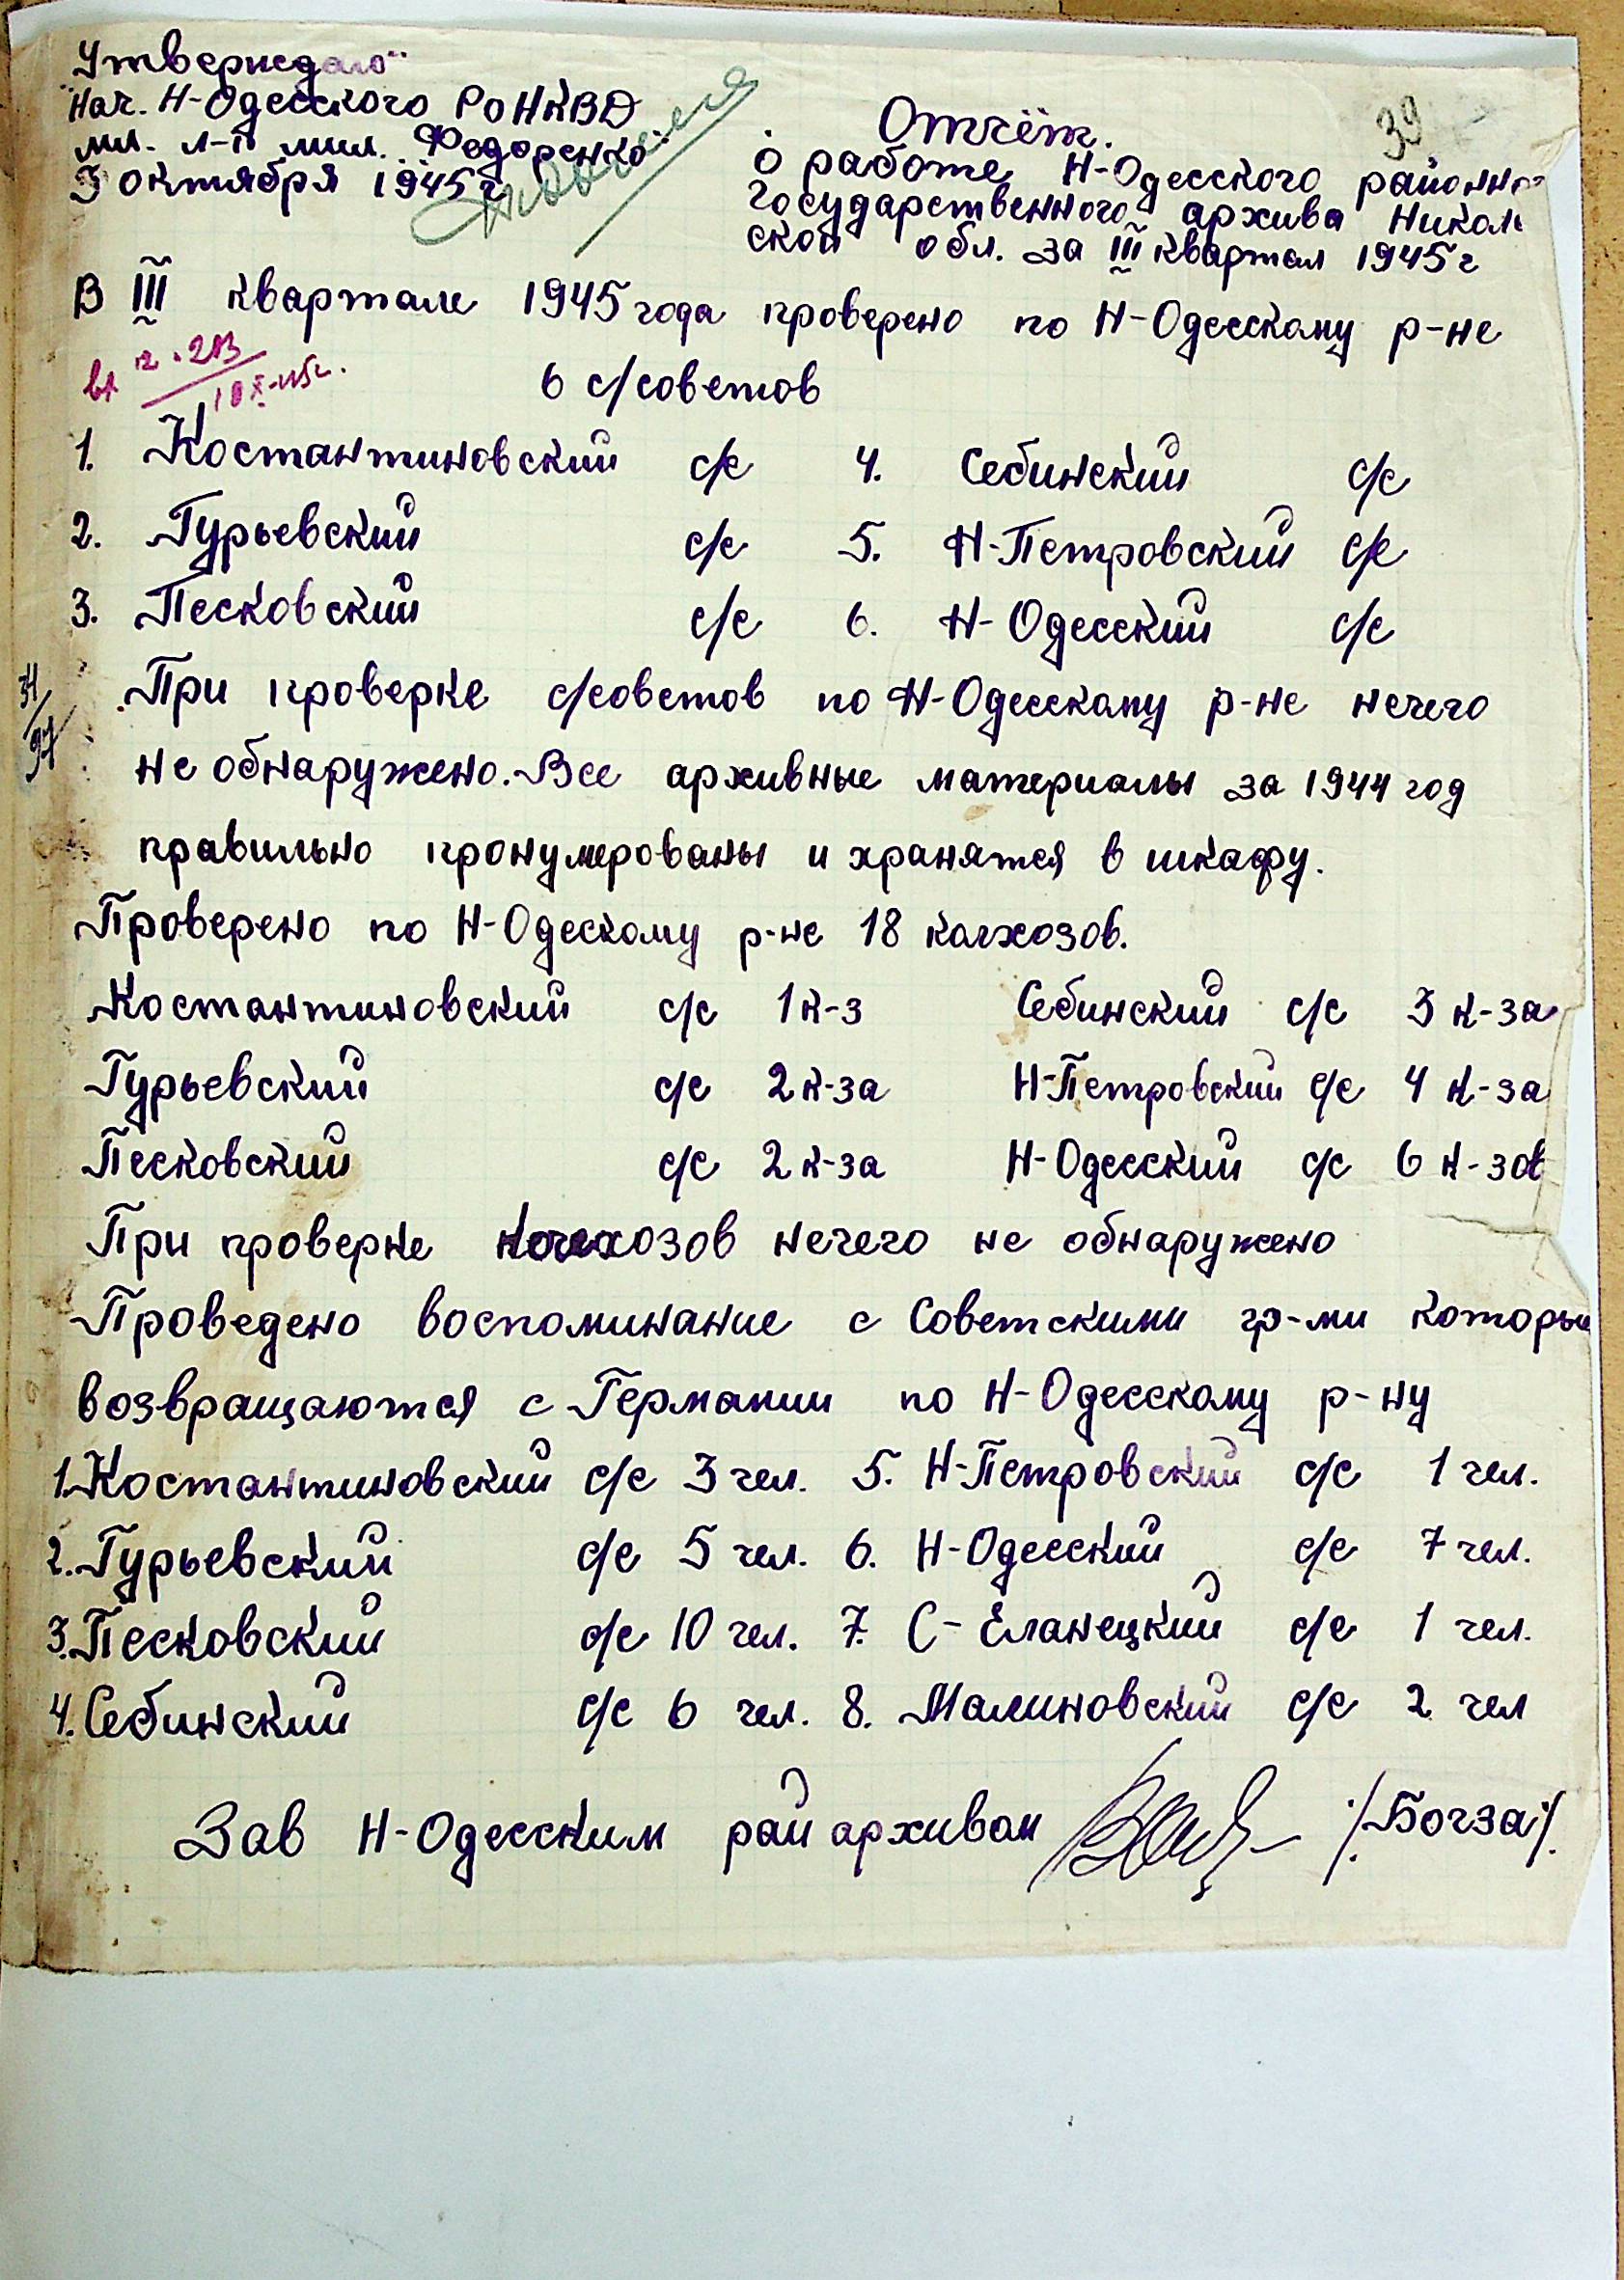 „Утверждаю"
Нач. Н-Одесского РОНКВД
мл. л-т мил. Федоренко
3 октября 1945 г
39
Отчёт.
о работе Н-Одесского районно
государственного архива Никол
ской обл. за III квартал 1945 г
В III квартале 1945 года проверено по Н-Одесскому р-не
6 с/советов
вх 213
10 X-45г.
1. Костантиновский с/с 4. Себинский с/с
2. Гурьевский с/с 5. Н-Петровский с/с
3. Песковский с/с 6. Н-Одесский с/с
При проверке с/советов по Н-Одесскому р-не нечего
не обнаружено. Все архивные материалы за 1944 год
правильно пронумерованы и хранятся в шкафу.
Проверено по Н-Одескому р-не 18 колхозов.
Костантиновский с/с 1 к-з Себинский с/с 3 к-за
Гурьевский с/с 2 к-за Н-Петровский с/с 4 к-за
Песковский с/с 2 к-за Н-Одесский с/с 6 к-зов
При проверке колхозов нечего не обнаружено
Проведено воспоминание с Советскими гр-ми которые
возвращаются с Германии по Н-Одесскому р-ну
1. Костантиновский с/с 3 чел. 5. Н-Петровский с/с 1 чел.
2. Гурьевский с/с 5 чел. 6. Н-Одесский с/с 7 чел.
3. Песковский с/с 10 чел. 7. С-Еланецкий с/с 1 чел.
4. Себинский с/с 6 чел. 8. Малиновский с/с 2 чел
Зав Н-Одесским рай архивом /Богза/.